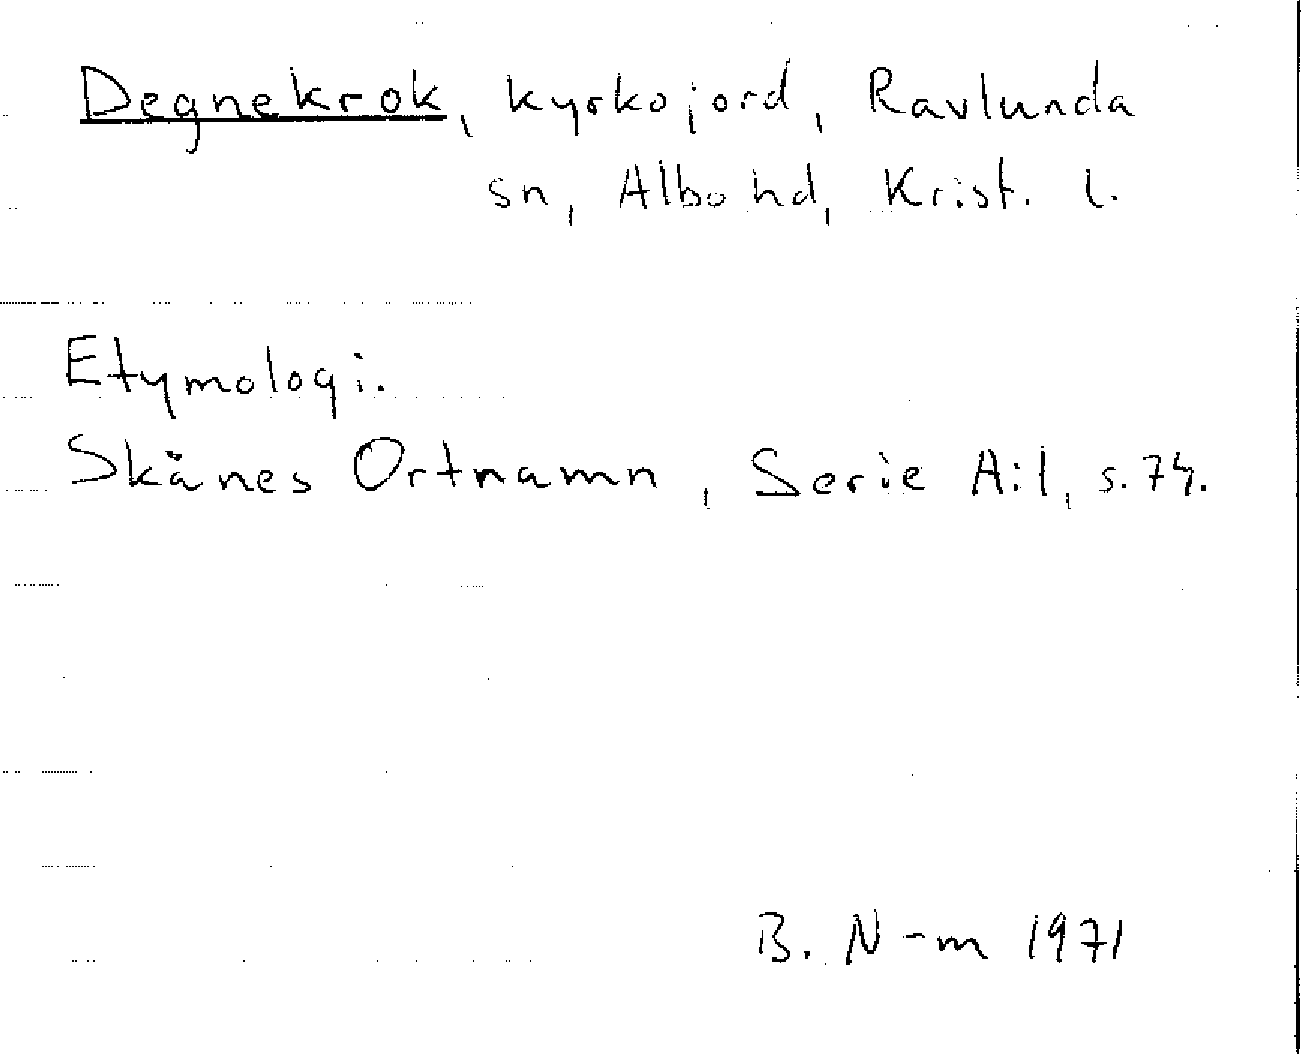 Degnekrok, kyrkojord, Ravlunda
sn, Albo hd, Krist. l.
Etymologi.
Skånes Ortnamn, Serie A:1, s. 74.
B. N-m 1971